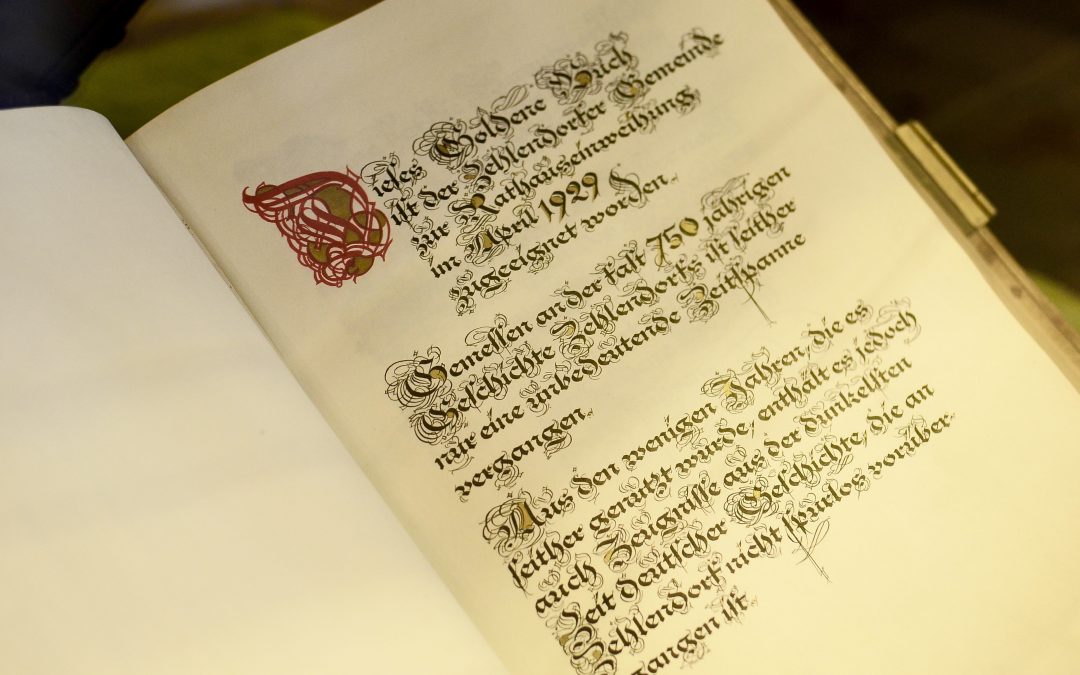 Dieses Goldene Buch
ist der Zehlendorfer Gemeinde
zur Rathauseinweihung
im April 1929
zugeeignet worden.
Gemessen an der fast 750 jährigen
Geschichte Zehlendorfs ist seither
nur eine unbedeutende Zeitspanne
vergangen.
Aus den wenigen Jahren, die es
seither genutzt wurde, enthält es jedoch
auch Zeugnisse aus der dunkelsten
Zeit deutscher Geschichte, die an
Zehlendorf nicht spurlos vorüber-
gangen ist